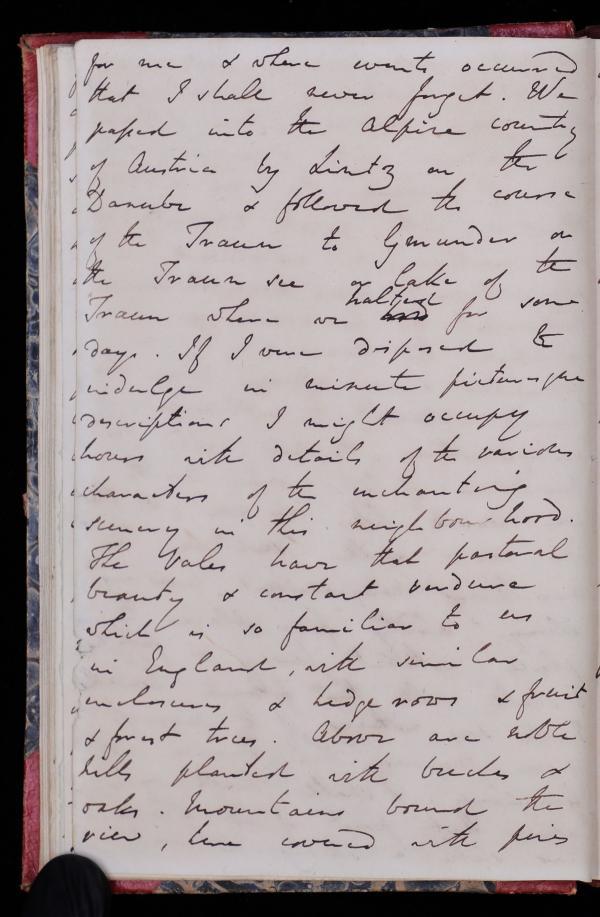 for me & where events occurred
that I shall never forget. We
passed into the Alpine country
of Austria by Lintz on the
Danube & followed the course
of the Traun to Gmunden on
the Traun see or lake of the
Traun where we halted for some
days. If I were disposed to
indulge in minute picturesque
descriptions I might occupy
hours with details of the various
characters of the enchanting
scenery in this neighbourhood.
The Vales have that pastoral
beauty & constant verdure
which is so familiar to us
in England, with similar
enclosures & hedge rows & fruit
& forest trees. Above are noble
hills planted with beeches &
oaks. Mountains bound the
view, here covered with pines